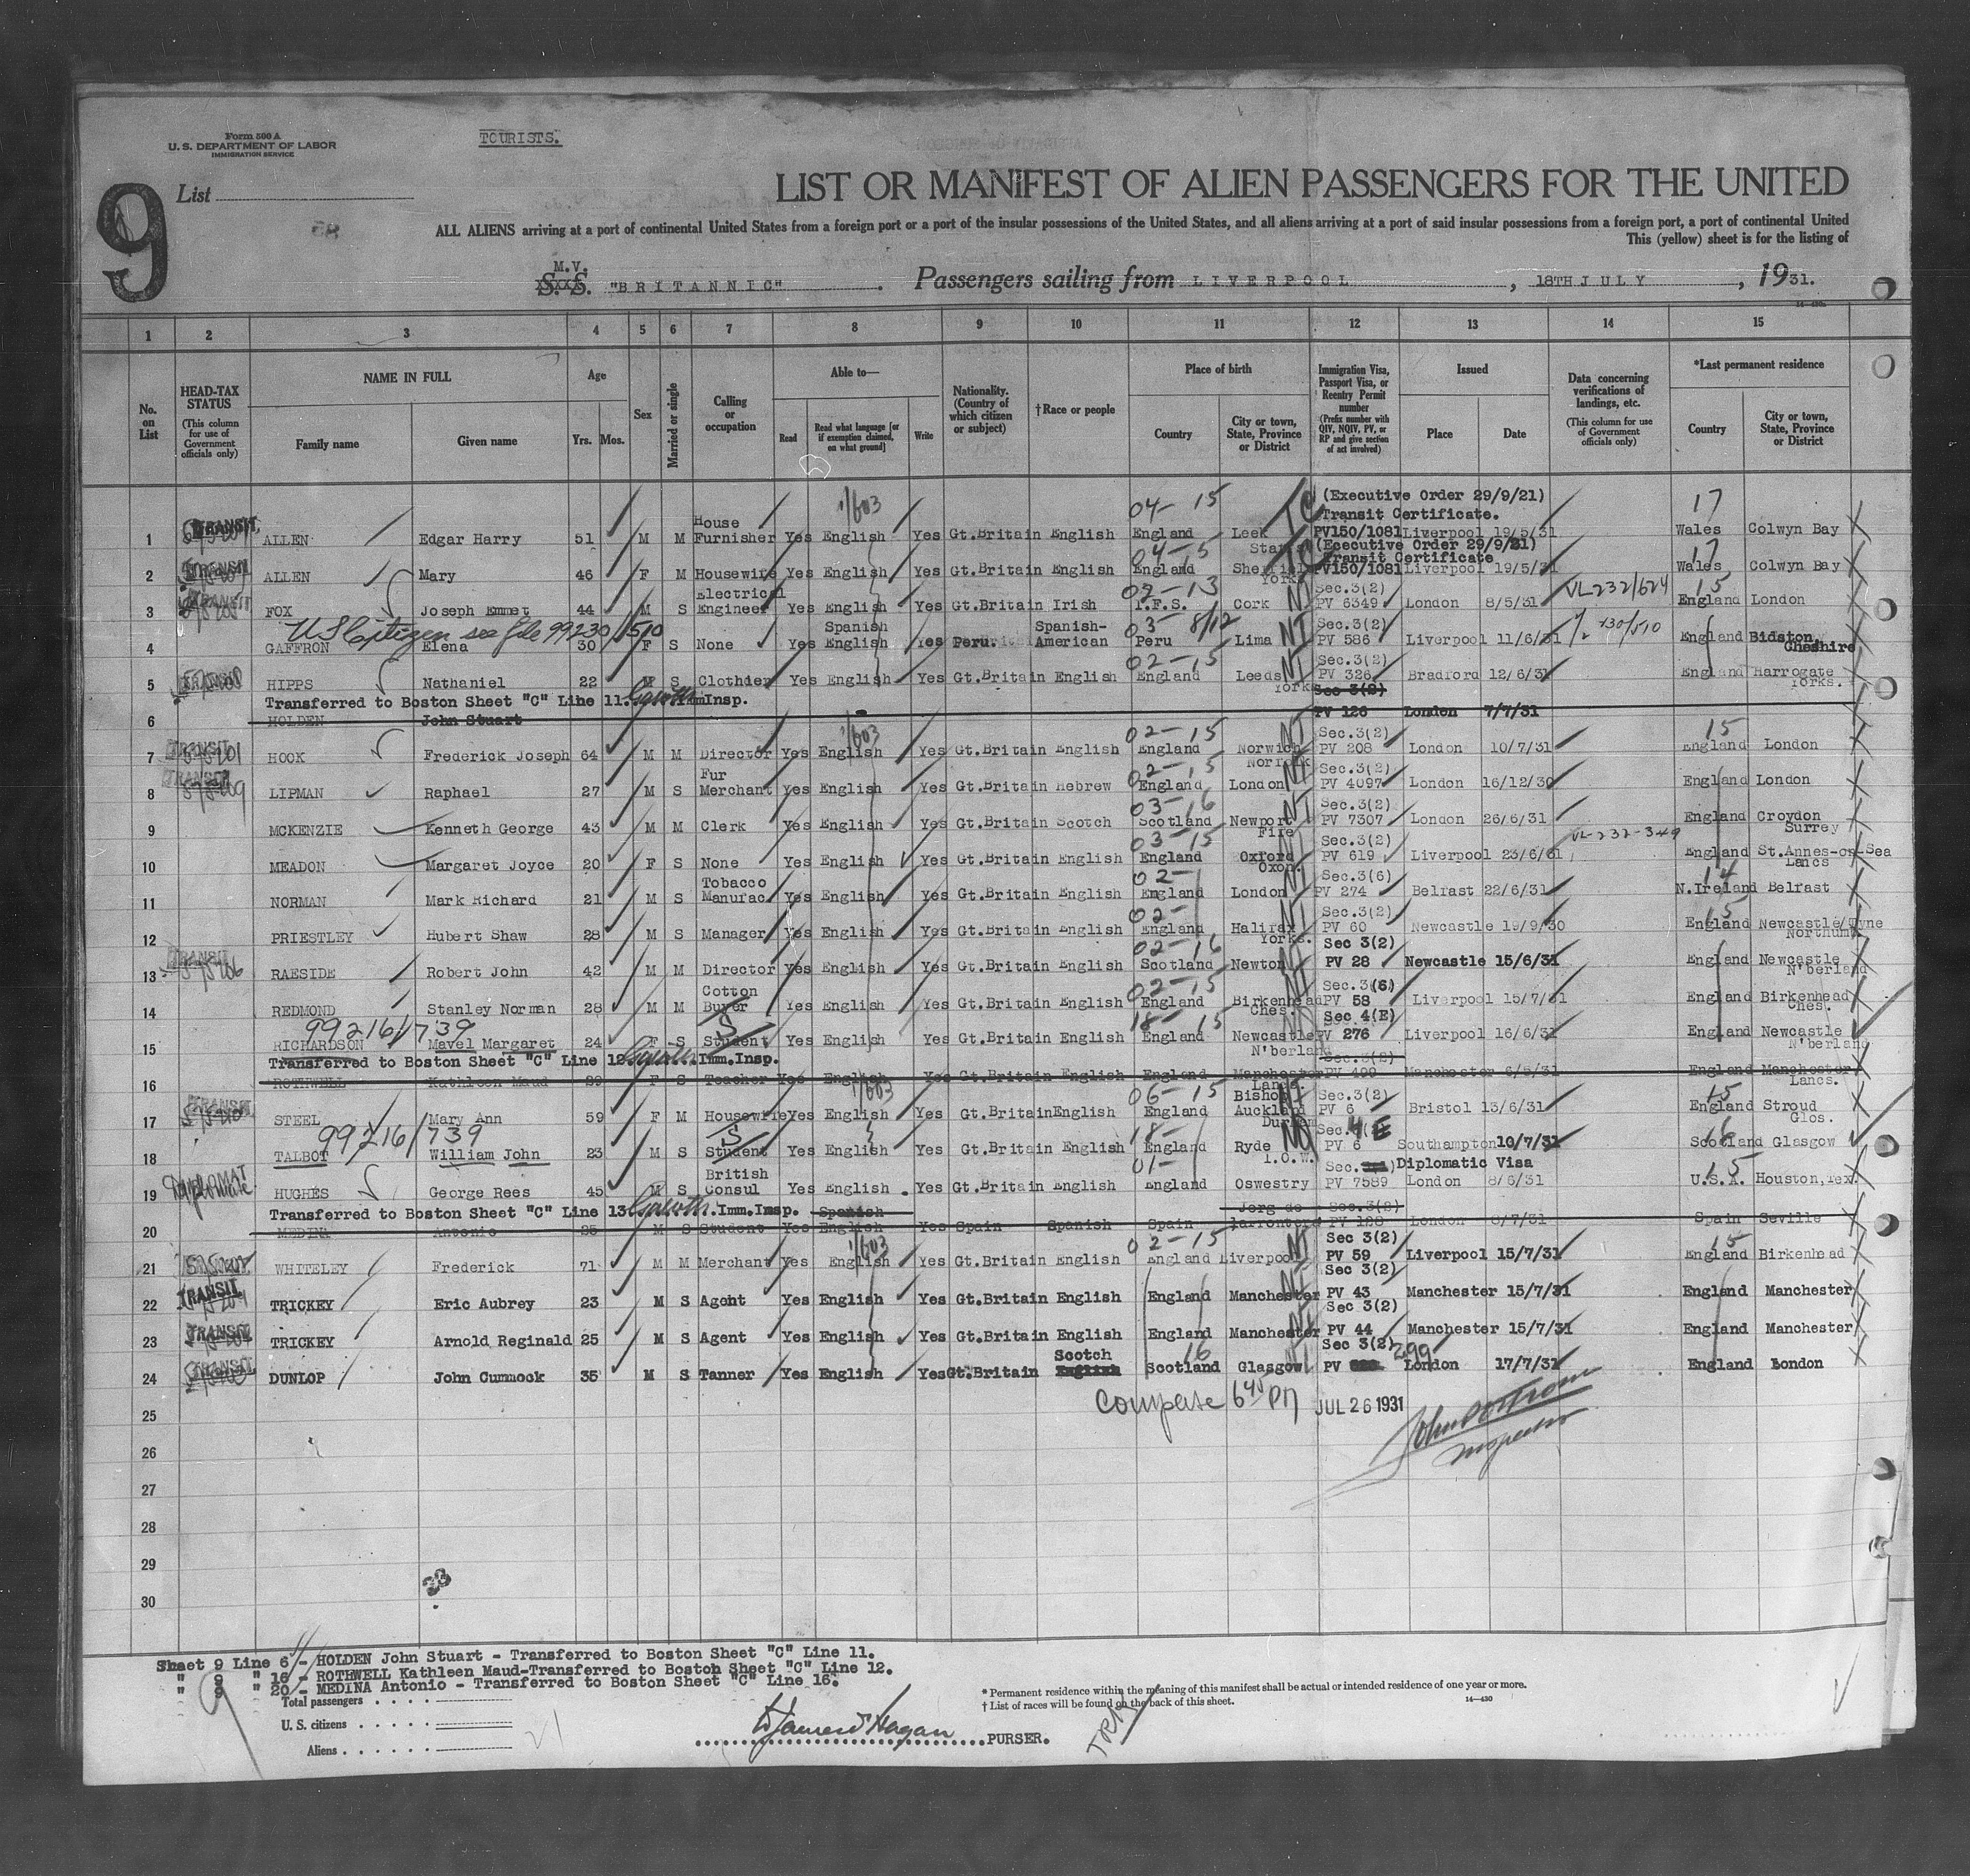 Form 500 A
U. S. DEPARTMENT OF LABOR
IMMIGRATION SERVICE
TOURISTS.
9
List
LIST OR MANIFEST OF ALIEN PASSENGERS FOR THE UNITED
ALL ALIENS arriving at a port of continental United States from a foreign port or a port of the insular possessions of the United States, and all aliens arriving at a port of said insular possessions from a foreign port, a port of continental United
This (yellow) sheet is for the listing of
M.V.
S. S. "BRITANNIC" Passengers sailing from LIVERPOOL, 18TH JULY, 1931.
1 2 3 4 5 6 7 8 9 10 11 12 13 14 15
No. on List
HEAD-TAX STATUS (This column for use of Government officials only)
NAME IN FULL Family name Given name
Age Yrs. Mos.
Sex
Married or single
Calling or occupation
Able to— Read Read what language [or if exemption claimed, on what ground] Write
Nationality. (Country of which citizen or subject)
†Race or people
Place of birth Country City or town, State, Province or District
Immigration Visa, Passport Visa, or Reentry Permit number (Prefix number with QIV, NQIV, PV, or RP and give section of act involved)
Issued Place Date
Data concerning verifications of landings, etc. (This column for use of Government officials only)
*Last permanent residence Country City or town, State, Province or District
1/603 04-15 TC (Executive Order 29/9/21) 17
House Transit Certificate.
1 TRANSIT ALLEN Edgar Harry 51 M M Furnisher Yes English Yes Gt.Britain English England Leek PV150/1081 Liverpool 19/5/31 Wales Colwyn Bay
Staffs TC (Executive Order 29/9/21) 17
Transit Certificate
2 ALLEN Mary 46 F M Housewife Yes English Yes Gt.Britain English England Sheffield PV150/1081 Liverpool 19/5/31 Wales Colwyn Bay
Electrical 02-13 York NI Sec.3(2) VL-232/624 15
3 TRANSIT FOX Joseph Emmet 44 M S Engineer Yes English Yes Gt.Britain Irish I.F.S. Cork PV 6349 London 8/5/31 England London
US Citizen see file 99230/510 Spanish Spanish- 03 8/12 NI Sec.3(2)
4 GAFFRON Elena 30 F S None Yes English Yes Peru. American Peru Lima PV 586 Liverpool 11/6/31 England Bidston, Cheshire
02-15 NI Sec.3(2)
5 HIPPS Nathaniel 22 M S Clothier Yes English Yes Gt.Britain English England Leeds York PV 326 Bradford 12/6/31 England Harrogate Yorks.
Transferred to Boston Sheet "C" Line 11. Imm Insp. Sec 3(2)
6 HOLDEN John Stuart PV 126 London 7/7/31
1/603 02-15 NI Sec.3(2) 15
7 TRANSIT HOOK Frederick Joseph 64 M M Director Yes English Yes Gt.Britain English England Norwich Norfolk PV 208 London 10/7/31 England London
Fur 02-15 NI Sec.3(2)
8 TRANSIT LIPMAN Raphael 27 M S Merchant Yes English Yes Gt.Britain Hebrew England London PV 4097 London 16/12/30 England London
03-16 NI Sec.3(2)
9 MCKENZIE Kenneth George 43 M M Clerk Yes English Yes Gt.Britain Scotch Scotland Newport Fife PV 7307 London 26/6/31 England Croydon Surrey
03-15 NI Sec.3(2) VL-232-349
10 MEADON Margaret Joyce 20 F S None Yes English Yes Gt.Britain English England Oxford Oxon. PV 619 Liverpool 23/6/31 England St.Annes-on-Sea Lancs
Tobacco 02- NI Sec.3(6) 14
11 NORMAN Mark Richard 21 M S Manufac. Yes English Yes Gt.Britain English England London PV 274 Belfast 22/6/31 N.Ireland Belfast
02- NI Sec.3(2) 15
12 PRIESTLEY Hubert Shaw 28 M S Manager Yes English Yes Gt.Britain English England Halifax Yorks. PV 60 Newcastle 19/9/30 England Newcastle/Tyne Northumb
02-16 NI Sec 3(2)
13 TRANSIT RAESIDE Robert John 42 M M Director Yes English Yes Gt.Britain English Scotland Newton PV 28 Newcastle 15/6/31 England Newcastle N'berland
Cotton 02-15 NI Sec.3(6)
14 REDMOND Stanley Norman 28 M M Buyer Yes English Yes Gt.Britain English England Birkenhead Ches. PV 58 Liverpool 15/7/31 England Birkenhead Ches.
99216/739 S 18-15 Sec.4(E)
15 RICHARDSON Mavel Margaret 24 F S Student Yes English Yes Gt.Britain English England Newcastle N'berland PV 276 Liverpool 16/6/31 England Newcastle N'berland
Transferred to Boston Sheet "C" Line 12 Imm.Insp. Sec.3(2)
16 ROTHWELL Kathleen Maud 29 F S Teacher Yes English Yes Gt.Britain English England Manchester Lancs. PV 499 Manchester 6/5/31 England Manchester Lancs.
1/603 06-15 NI Sec.3(2) 15
17 TRANSIT STEEL Mary Ann 59 F M Housewife Yes English Yes Gt.Britain English England Bishop Auckland Durham PV 6 Bristol 13/6/31 England Stroud Glos.
99216/739 S 18- Sec.4E 16
18 TALBOT William John 23 M S Student Yes English Yes Gt.Britain English England Ryde I.O.W. PV 6 Southampton 10/7/31 Scotland Glasgow
DIPLOMAT British 01- Sec. Diplomatic Visa 15
19 Diplomate HUGHES George Rees 45 M S Consul Yes English Yes Gt.Britain English England Oswestry PV 7589 London 8/6/31 U.S.A. Houston,Tex.
Transferred to Boston Sheet "C" Line 13 .Imm.Insp. Spanish Jerg de Sec.3(2)
20 MEDINA Antonio 25 M S Student Yes English Yes Spain Spanish Spain PV 128 London 8/7/31 Spain Seville
1/603 02-15 NI Sec 3(2) 15
21 WHITELEY Frederick 71 M M Merchant Yes English Yes Gt.Britain English England Liverpool PV 59 Liverpool 15/7/31 England Birkenhead
NI Sec 3(2)
22 TRANSIT TRICKEY Eric Aubrey 23 M S Agent Yes English Yes Gt.Britain English England Manchester PV 43 Manchester 15/7/31 England Manchester
NI Sec 3(2)
23 TRANSIT TRICKEY Arnold Reginald 25 M S Agent Yes English Yes Gt.Britain English England Manchester PV 44 Manchester 15/7/31 England Manchester
Scotch 16 NI Sec 3(2) 299
24 TRANSIT DUNLOP John Cummock 35 M S Tanner Yes English Yes Gt.Britain English Scotland Glasgow PV London 17/7/31 England London
25 JUL 26 1931
26 Inspector
27
28
29
30
Sheet 9 Line 6 - HOLDEN John Stuart - Transferred to Boston Sheet "C" Line 11.
" 9 " 16 - ROTHWELL Kathleen Maud-Transferred to Boston Sheet "C" Line 12.
" 9 " 20 - MEDINA Antonio - Transferred to Boston Sheet "C" Line 16.
Total passengers
U. S. citizens
Aliens
21
PURSER.
* Permanent residence within the meaning of this manifest shall be actual or intended residence of one year or more.
† List of races will be found on the back of this sheet.
14—430